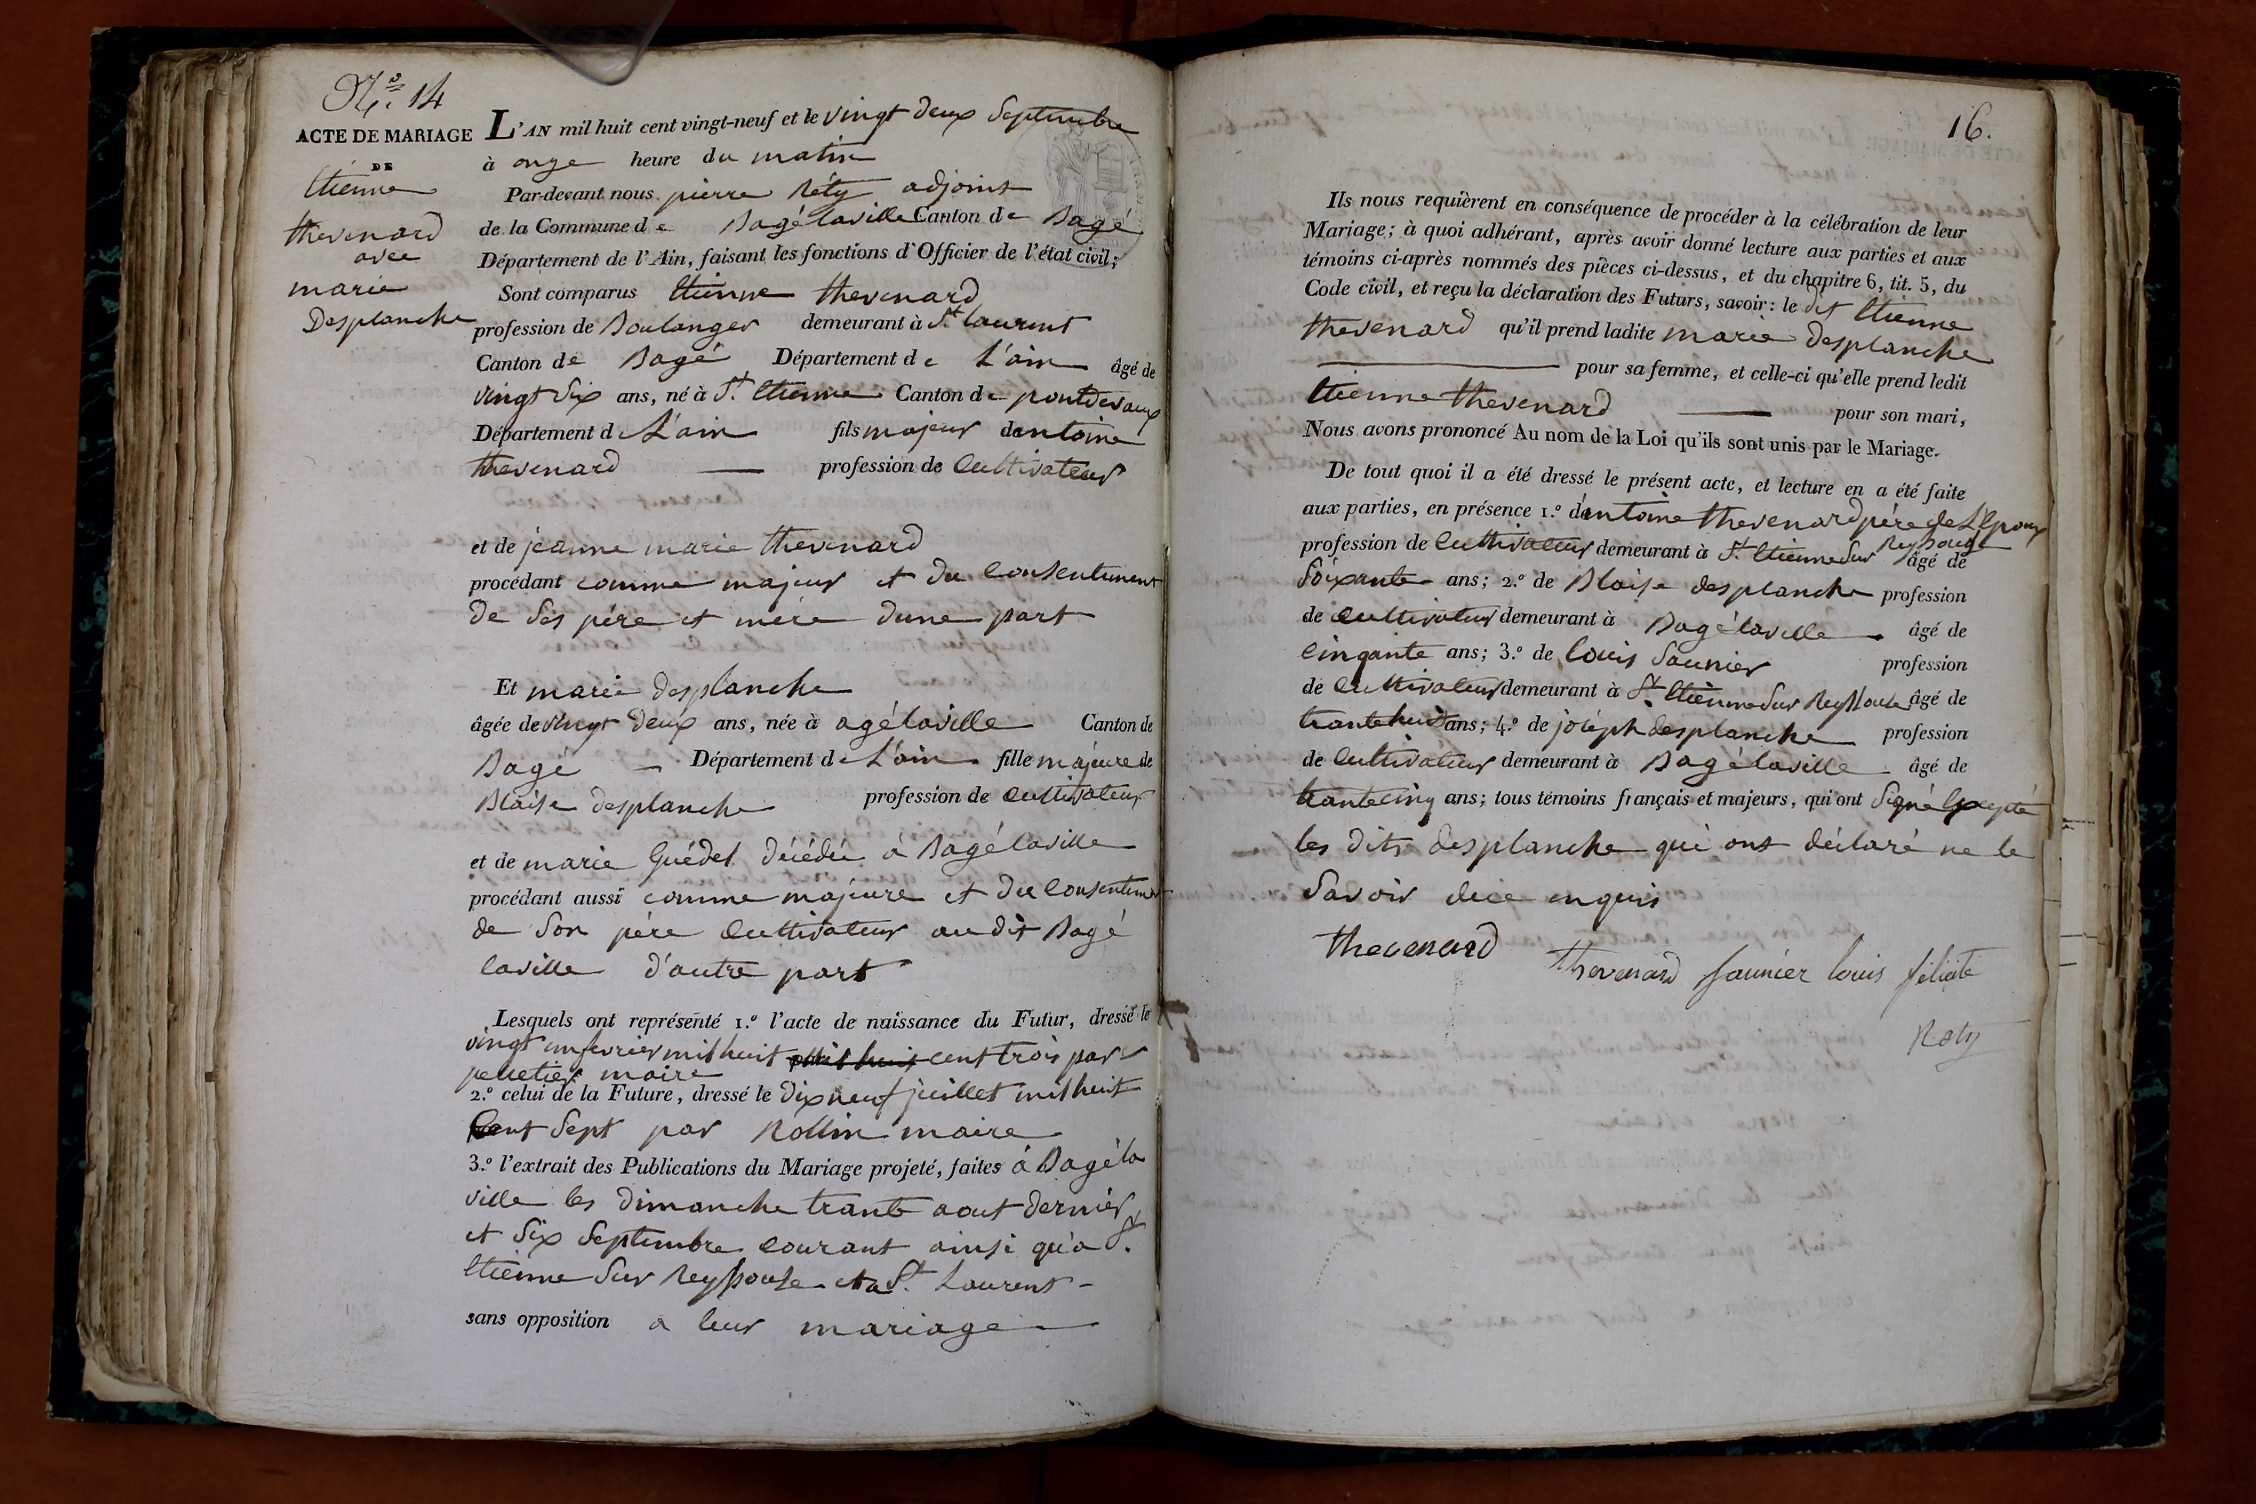 N.° 14
ACTE DE MARIAGE
DE
Etienne
thevenard
avec
marie
Desplanche
L'AN mil huit cent vingt-neuf et le vingt deux Septembre
à onze heure du matin
Par-devant nous pierre Réty adjoint
de la Commune de Bagélaville Canton de Bagé
Département de l'Ain, faisant les fonctions d'Officier de l'état civil;
Sont comparus Etienne thevenard
profession de Boulanger demeurant à St laurent
Canton de Bagé Département de L'ain âgé de
vingt Six ans, né à St. Etienne Canton de pontdevaux
Département de L'ain fils majeur dantoine
thevenard profession de Cultivateur
et de jeanne marie thevenard
procédant comme majeur et du Consentement
de Ses père et mère dune part
Et marie desplanche
âgée de vingt deux ans, née à agélaville Canton de
Bagé Département de L'ain fille majeure de
Blaise desplanche profession de Cultivateur
et de marie Guédet décédée à Bagélaville
procédant aussi comme majeure et du Consentement
de Son père Cultivateur au dit Bagé
laville d'autre part
Lesquels ont représenté 1.° l'acte de naissance du Futur, dressé le
vingt un fevrier mil huit mil huit cent trois par
pelletier maire
2.° celui de la Future, dressé le dix neuf juillet mil huit
Cent Sept par Rollin maire
3.° l'extrait des Publications du Mariage projeté, faites à Bagéla
ville les dimanche trante aout dernier
et Six Septembre Courant ainsi qu'a St.
Etienne Sur Reyssouse et a St. Laurent -
sans opposition a leur mariage
16.
Ils nous requièrent en conséquence de procéder à la célébration de leur
Mariage; à quoi adhérant, après avoir donné lecture aux parties et aux
témoins ci-après nommés des pièces ci-dessus, et du chapitre 6, tit. 5, du
Code civil, et reçu la déclaration des Futurs, savoir: le dit Etienne
thevenard qu'il prend ladite marie desplanche
pour sa femme, et celle-ci qu'elle prend ledit
Etienne thevenard pour son mari,
Nous avons prononcé Au nom de la Loi qu'ils sont unis par le Mariage.
De tout quoi il a été dressé le présent acte, et lecture en a été faite
aux parties, en présence 1.° dantoine thevenard père de L'Epoux
profession de Cultivateur demeurant à St Etienne Sur Reyssouze âgé de
Soixante ans; 2.° de Blaise desplanche profession
de Cultivateur demeurant à Bagélaville âgé de
Cinqante ans; 3.° de louis Saunier profession
de Cultivateur demeurant à St. Etienne Sur Reyssouse âgé de
trante huit ans; 4.° de joseph desplanche profession
de Cultivateur demeurant à Bagélaville âgé de
trante cinq ans; tous témoins français et majeurs, qui ont Signé Excepté
les dits desplanche qui ont déclaré ne le
Savoir dece enquis
thevenard
thevenard saunier louis félicité
Réty